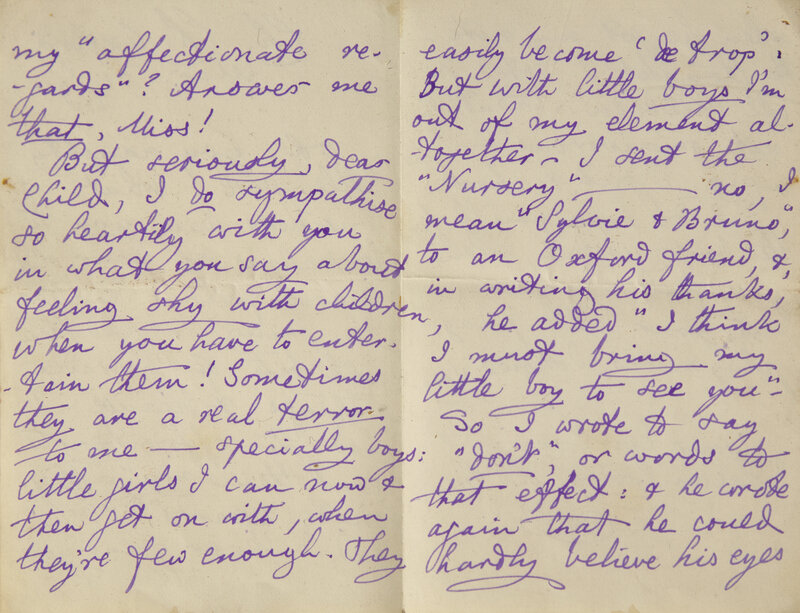 my "affectionate re-
-gards"? Answer me
that, Miss!
But seriously, dear
Child, I do sympathise
so heartily with you
in what you say about
feeling shy with children,
when you have to enter-
-tain them! Sometimes
they are a real terror
to me — specially boys:
little girls I can now &
then get on with, when
they're few enough. They
easily become 'de trop'.
But with little boys I'm
out of my element al-
-together. I sent the
"Nursery" —— no, I
mean "Sylvie & Bruno",
to an Oxford friend, &,
in writing his thanks,
he added "I think
I must bring my
little boy to see you".
So I wrote to say
"don't", or words to
that effect: & he wrote
again that he could
hardly believe his eyes